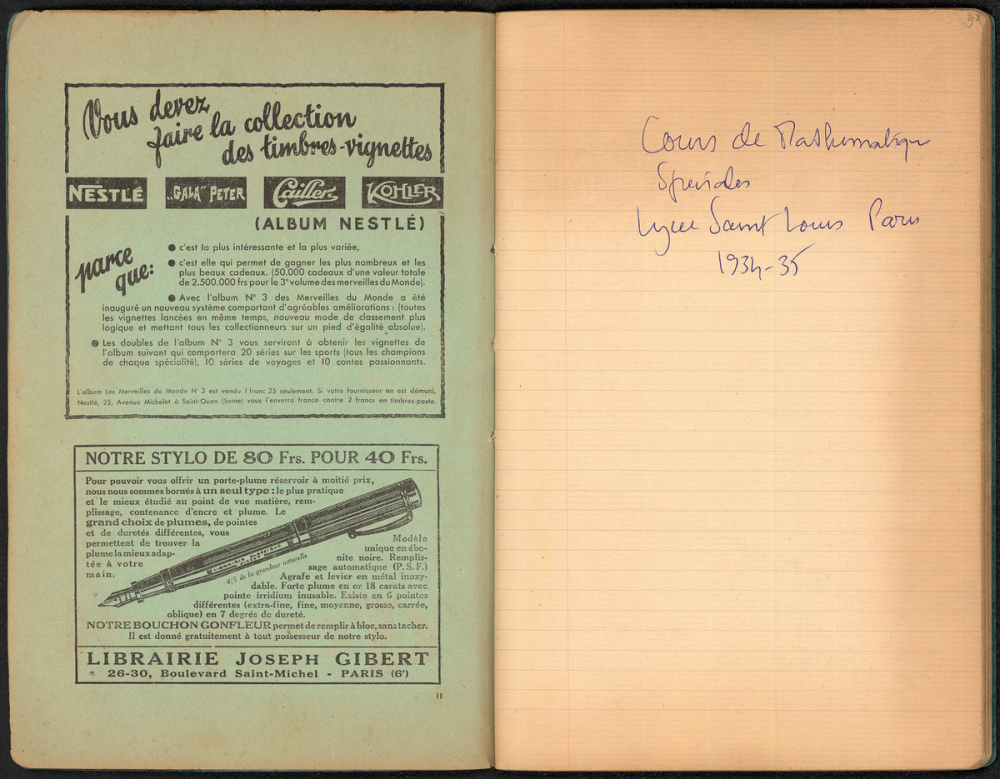 Vous devez
faire la collection
des timbres-vignettes
NESTLÉ
„GALA" PETER
Cailler
KOHLER
(ALBUM NESTLÉ)
parce
que:
● c'est la plus intéressante et la plus variée,
● c'est elle qui permet de gagner les plus nombreux et les
plus beaux cadeaux. (50.000 cadeaux d'une valeur totale
de 2.500.000 frs pour le 3e volume des merveilles du Monde).
● Avec l'album N° 3 des Merveilles du Monde a été
inauguré un nouveau système comportant d'agréables améliorations : (toutes
les vignettes lancées en même temps, nouveau mode de classement plus
logique et mettant tous les collectionneurs sur un pied d'égalité absolue).
● Les doubles de l'album N° 3 vous serviront à obtenir les vignettes de
l'album suivant qui comportera 20 séries sur les sports (tous les champions
de chaque spécialité), 10 séries de voyages et 10 contes passionnants.
L'album Les Merveilles du Monde N° 3 est vendu 1 franc 25 seulement. Si votre fournisseur en est démuni,
Nestlé, 25, Avenue Michelet à Saint-Ouen (Seine) vous l'enverra franco contre 2 francs en timbres-poste.
NOTRE STYLO DE 80 Frs. POUR 40 Frs.
Pour pouvoir vous offrir un porte-plume réservoir à moitié prix,
nous nous sommes bornés à un seul type : le plus pratique
et le mieux étudié au point de vue matière, rem-
plissage, contenance d'encre et plume. Le
grand choix de plumes, de pointes
et de duretés différentes, vous
permettent de trouver la
plume la mieux adap-
tée à votre
main.
4/5 de la grandeur naturelle
Modèle
unique en ébo-
nite noire. Remplis-
sage automatique (P. S. F.)
Agrafe et levier en métal inoxy-
dable. Forte plume en or 18 carats avec
pointe irridium inusable. Existe en 6 pointes
différentes (extra-fine, fine, moyenne, grosse, carrée,
oblique) en 7 degrés de dureté.
NOTRE BOUCHON GONFLEUR permet de remplir à bloc, sans tacher.
Il est donné gratuitement à tout possesseur de notre stylo.
LIBRAIRIE JOSEPH GIBERT
26-30, Boulevard Saint-Michel - PARIS (6e)
11
Cours de Mathématique
Spéciales
Lycée Saint Louis Paris
1934-35